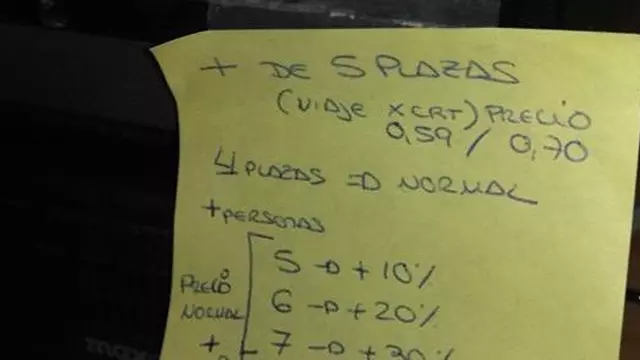 + DE 5 PLAZAS
(VIAJE X CRT) PRECIO
0,59 / 0,70
4 PLAZAS => NORMAL
+ PERSONAS
5 -> + 10%
PRECIO
6 -> + 20%
NORMAL
+
7 -> + 30%
max